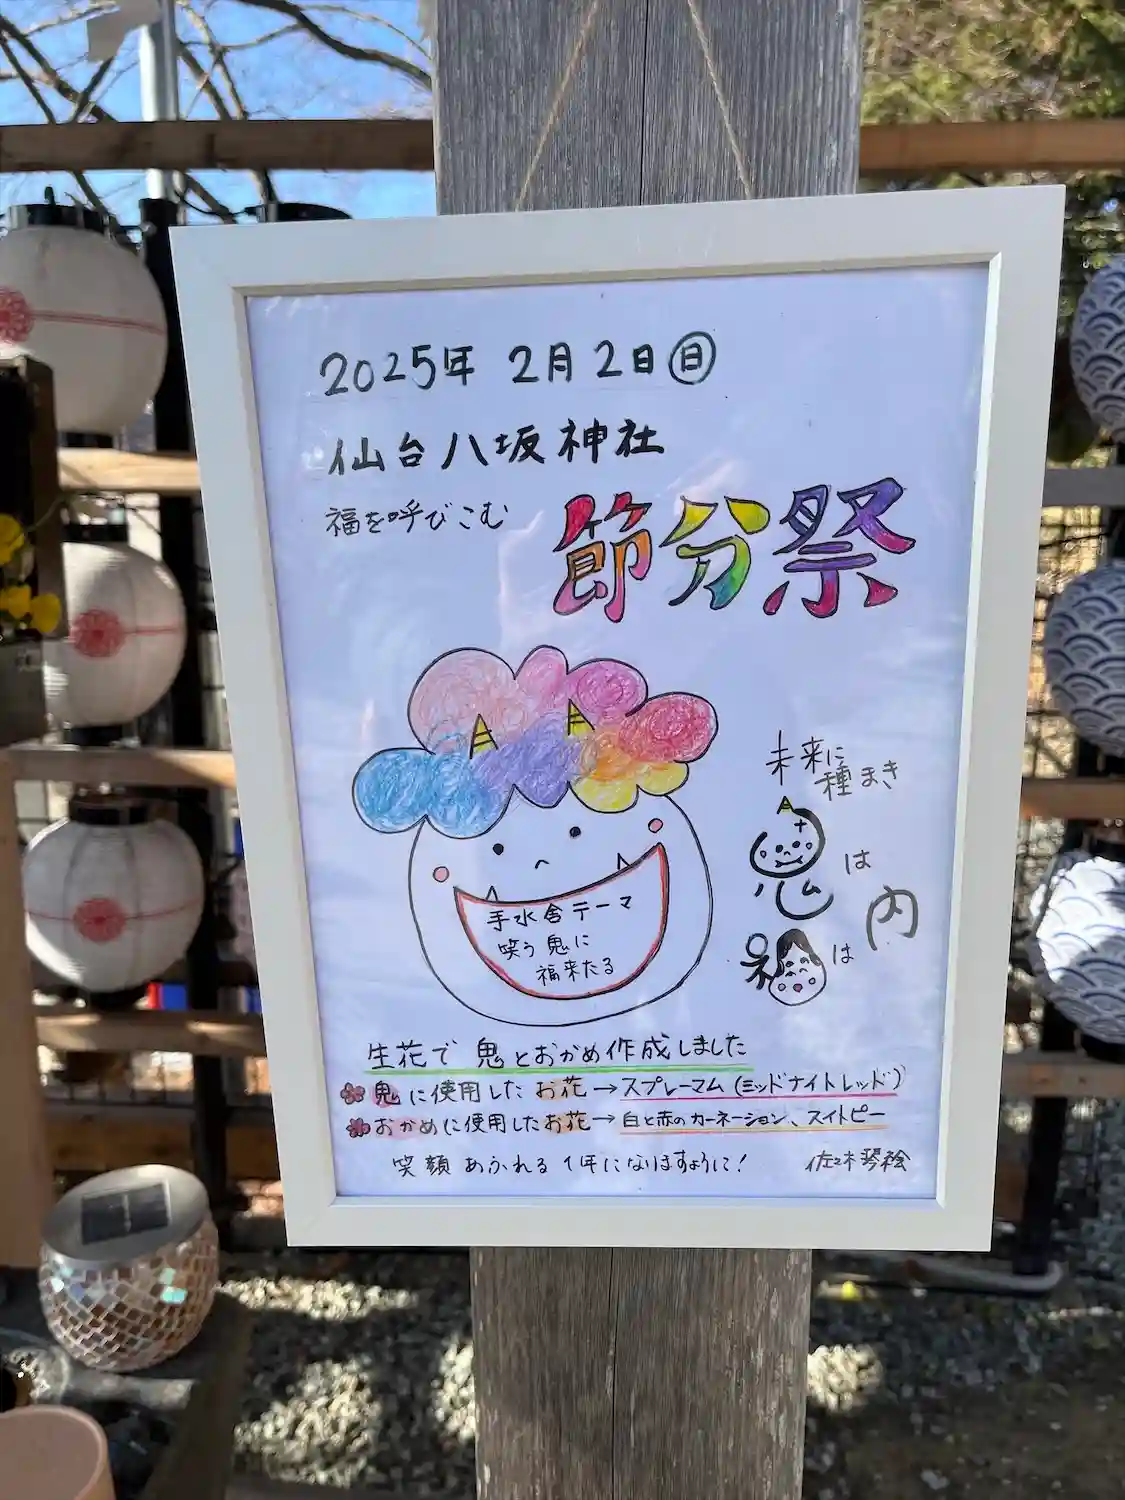 2025年 2月2日㊐
仙台八坂神社
福を呼びこむ
節分祭
未来に
種まき
鬼は
福は
内
手水舎テーマ
笑う鬼に
福来たる
生花で 鬼とおかめ作成しました
鬼に使用したお花→スプレーマム(ミッドナイトレッド)
おかめに使用したお花→白と赤のカーネーション、スイトピー
笑顔あふれる1年になりますように!
佐々木琴絵